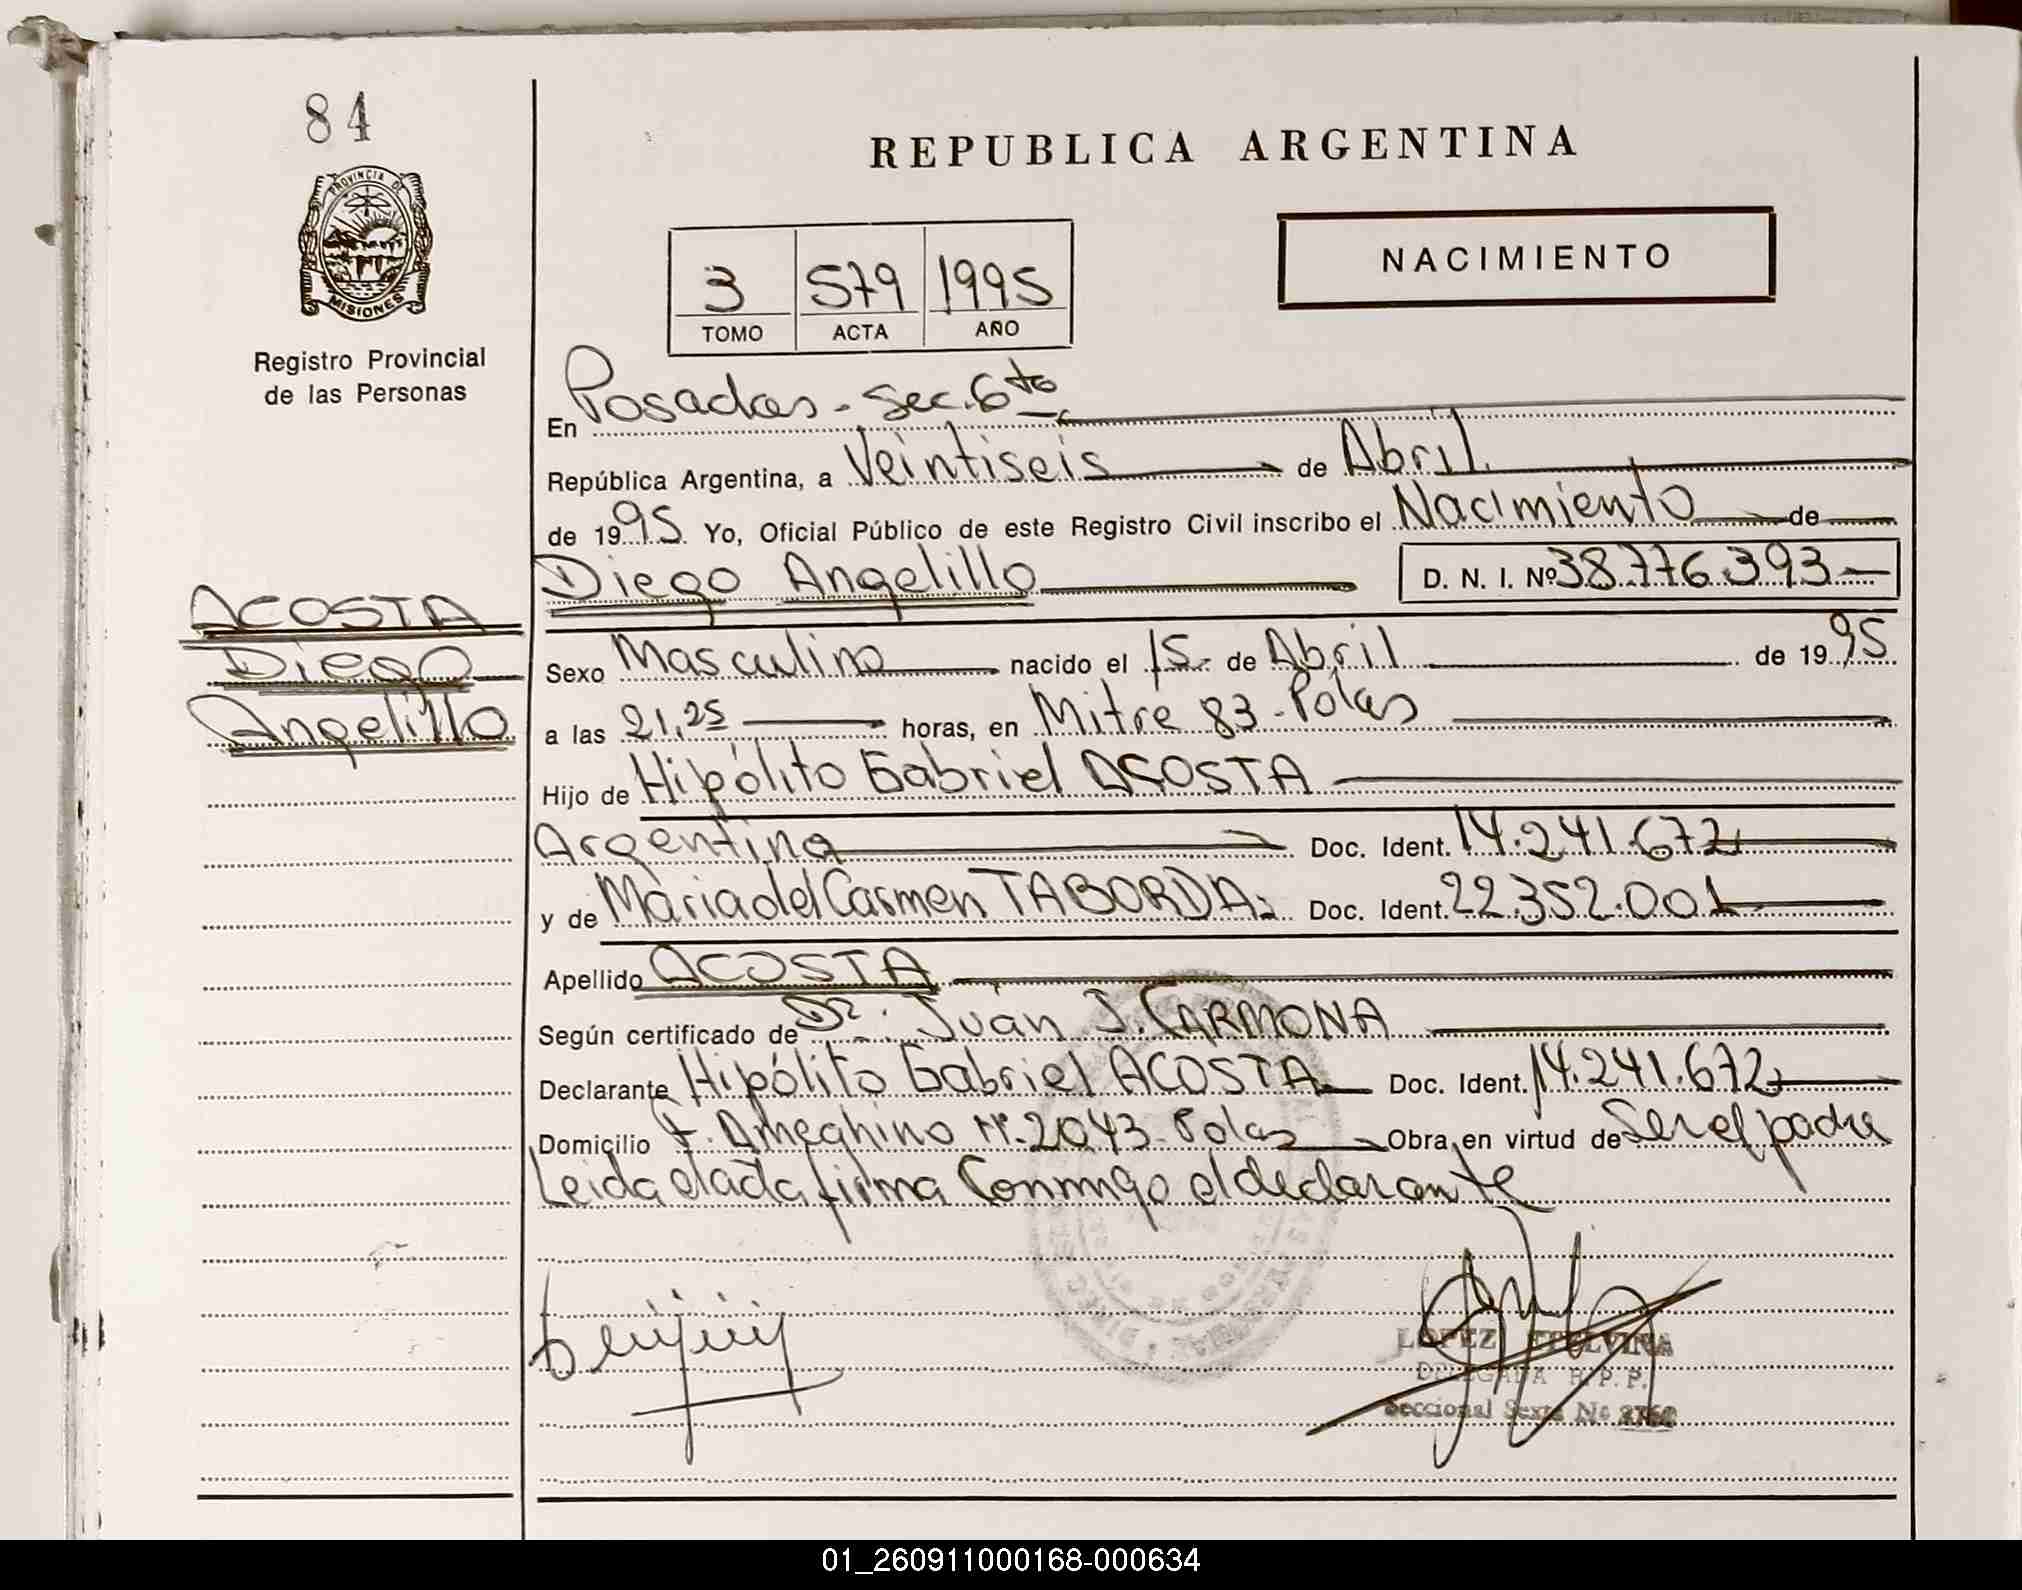 84
PROVINCIA DE
MISIONES
Registro Provincial
de las Personas
REPUBLICA ARGENTINA
NACIMIENTO
3 579 1995
TOMO ACTA AÑO
En Posadas - Sec. 6ta
República Argentina, a Veintiseis de Abril
de 1995 Yo, Oficial Público de este Registro Civil inscribo el Nacimiento de
Diego Angelillo D. N. I. Nº 38776393
ACOSTA
Diego
Angelillo
Sexo Masculino nacido el 15 de Abril de 1995
a las 21,25 horas, en Mitre 83 - Pdas
Hijo de Hipólito Gabriel ACOSTA
Argentina Doc. Ident. 14.241.672
y de Maria del Carmen TABORDA Doc. Ident. 22.352.001
Apellido ACOSTA
Según certificado de Dr. Juan J. CARMONA
Declarante Hipólito Gabriel ACOSTA Doc. Ident. 14.241.672
Domicilio F. Ameghino Nº 2043 - Pdas Obra, en virtud de Ser el padre
Leida el acta firma Conmigo el declarante
LOPEZ ETELVINA
DELEGADA R.P.P.
Seccional Sexta Nº
01_260911000168-000634